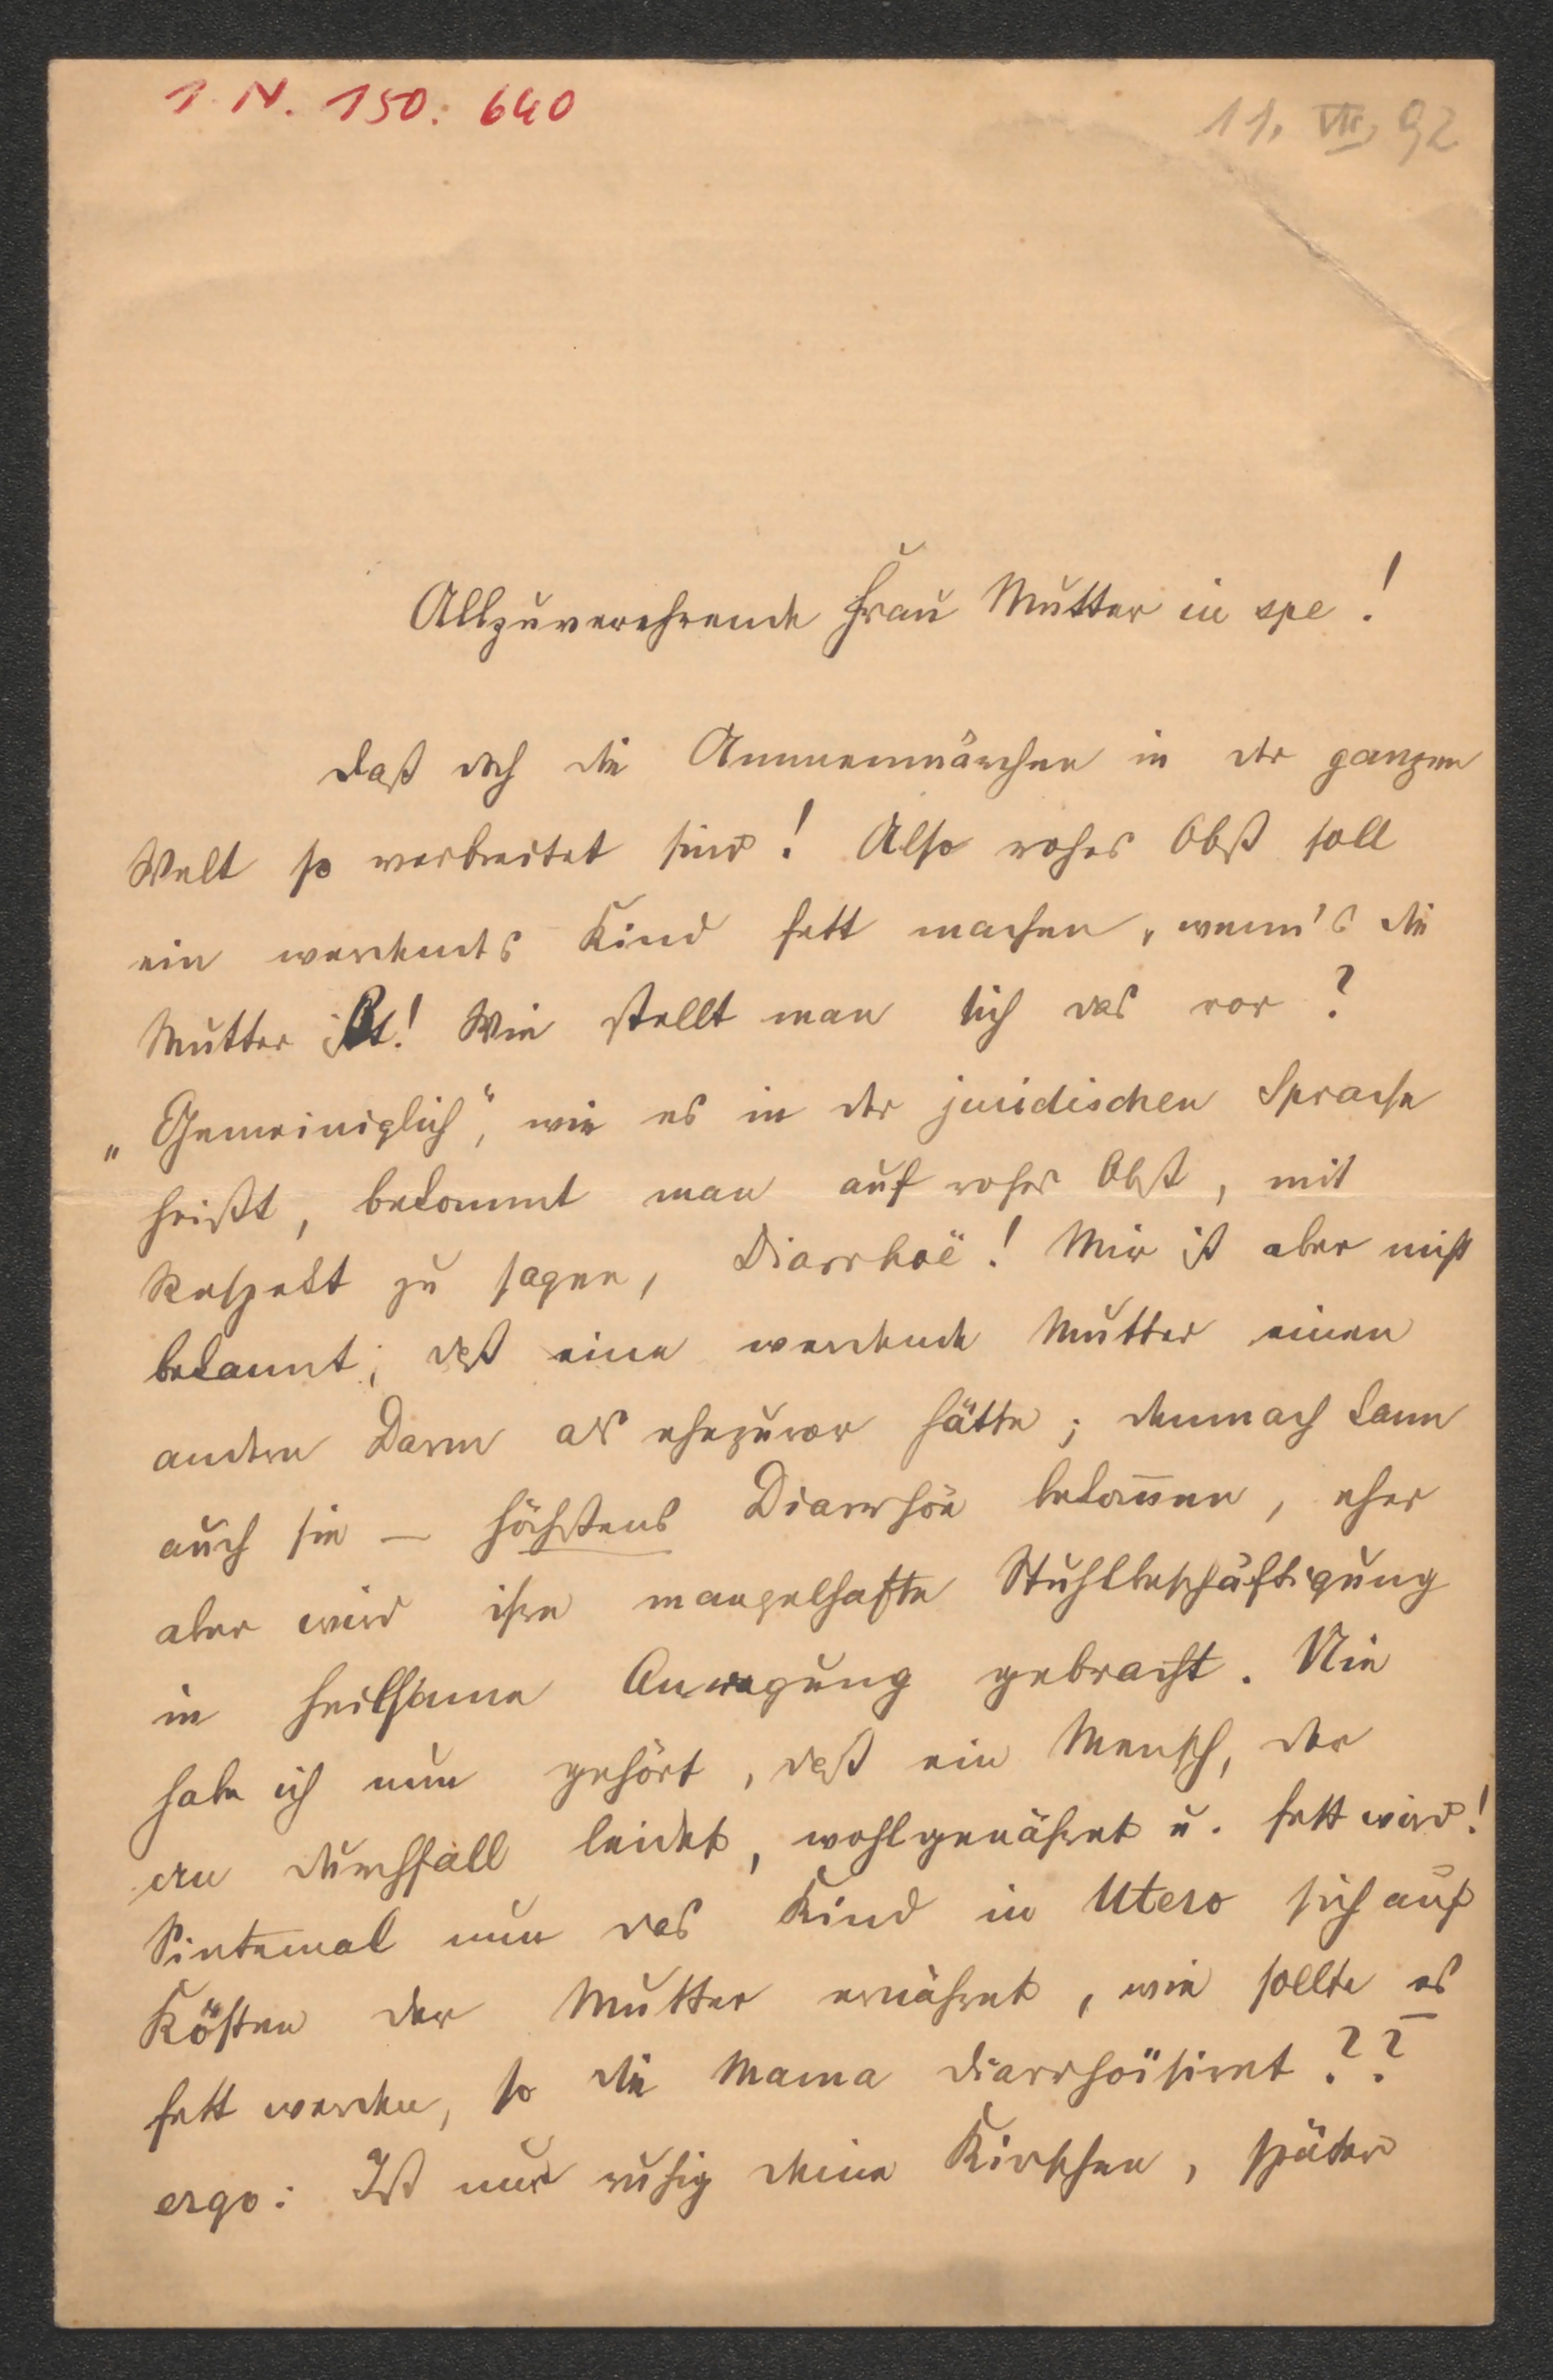 I. N. 150.640
11. VII. 92
Allzuverehrende Frau Mutter in spe!
Daß doch die Ammenmärchen in der ganzen
Welt so verbreitet sind! Also rohes Obst soll
ein werdendes Kind fett machen, wenn's die
Mutter ißt! Wie stellt man sich das vor?
„Gemeiniglich", wie es in der juridischen Sprache
heißt, bekommt man auf rohes Obst, mit
Respekt zu sagen, Diarrhoë! Mir ist aber nicht
bekannt, daß eine werdende Mutter einen
andern Darm als ehezuvor hätte; demnach kann
auch sie — höchstens Diarrhöe bekom̅en, eher
aber wird ihre mangelhafte Stuhlbeschäftigung
in heilsame Anregung gebracht. Nie
habe ich nun gehört, daß ein Mensch, der
an Durchfall leidet, wohlgenähret u. fett wird!
Sintemal nun das Kind in Utero sich auf
Kösten der Mutter ernähret, wie sollte es
fett werden, so die Mama diarrhoïsiret??
ergo: Iß nur ruhig deine Kirschen, später